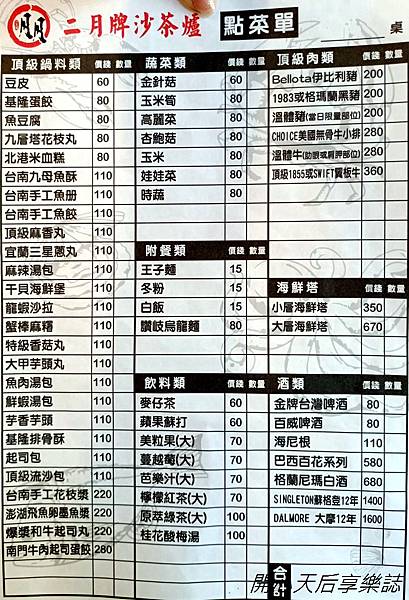 二月牌沙茶爐 點菜單 桌
頂級鍋料類 價錢 數量
豆皮 60
基隆蛋餃 80
魚豆腐 80
九層塔花枝丸 80
北港米血糕 80
台南九母魚酥 110
台南手工魚册 110
台南手工魚餃 110
頂級麻香丸 110
宜蘭三星蔥丸 110
麻辣湯包 110
干貝海鮮堡 110
龍蝦沙拉 110
蟹棒麻糬 110
特級香菇丸 110
大甲芋頭丸 110
魚肉湯包 110
鮮蝦湯包 110
芋香芋頭 110
基隆排骨酥 110
起司包 110
頂級流沙包 110
台南手工花枝漿 220
澎湖飛魚卵墨魚漿 220
爆漿和牛起司丸 220
南門牛肉起司蛋餃 280
蔬菜類 價錢 數量
金針菇 60
玉米筍 80
高麗菜 80
杏鮑菇 80
玉米 80
娃娃菜 80
時蔬 80
附餐類 價錢 數量
王子麵 15
冬粉 15
白飯 15
讚岐烏龍麵 80
飲料類 價錢 數量
麥仔茶 60
蘋果蘇打 60
美粒果(大) 70
蔓越莓(大) 70
芭樂汁(大) 70
檸檬紅茶(大) 70
原萃綠茶(大) 100
桂花酸梅湯 100
頂級肉類 價錢 數量
Bellota伊比利豬 200
1983或格瑪蘭黑豬 200
溫體豬(當日限量部位) 200
CHOICE美國無骨牛小排 280
溫體牛(肋眼或肩胛部位) 280
頂級1855或SWIFT翼板牛 360
海鮮塔 價錢 數量
小層海鮮塔 350
大層海鮮塔 670
酒類 價錢 數量
金牌台灣啤酒 80
百威啤酒 80
海尼根 110
巴西百花系列 580
格蘭尼瑪白酒 680
SINGLETON蘇格登12年 1400
DALMORE 大摩12年 1600
合計
天后享樂誌